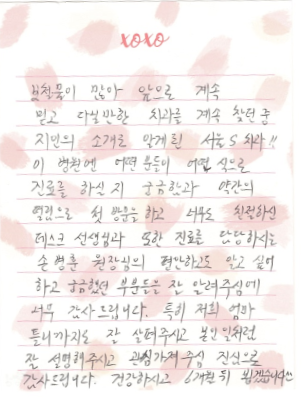 xoxo
보철물이 많아 앞으로 계속
믿고 다닐만한 치과를 계속 찾던 중
지인의 소개로 알게된 서울 S 치과!!
이 병원엔 어떤분들이 어떤 식으로
진료를 하신 지 궁금함과 약간의
떨림으로 첫 방문을 하고 너무도 친절하신
데스크 선생님과 또한 진료를 담당하시는
손병훈 원장님의 편안하고도 알고 싶어
하고 궁금했던 부분들을 잘 알려주심에
너무 감사드립니다. 특히 저희 어머
틀니까지도 잘 살펴주시고 본인 일처럼
잘 설명해주시고 관심가져주심 진심으로
감사드립니다. 건강하시고 6개월 뒤 뵙겠습니다